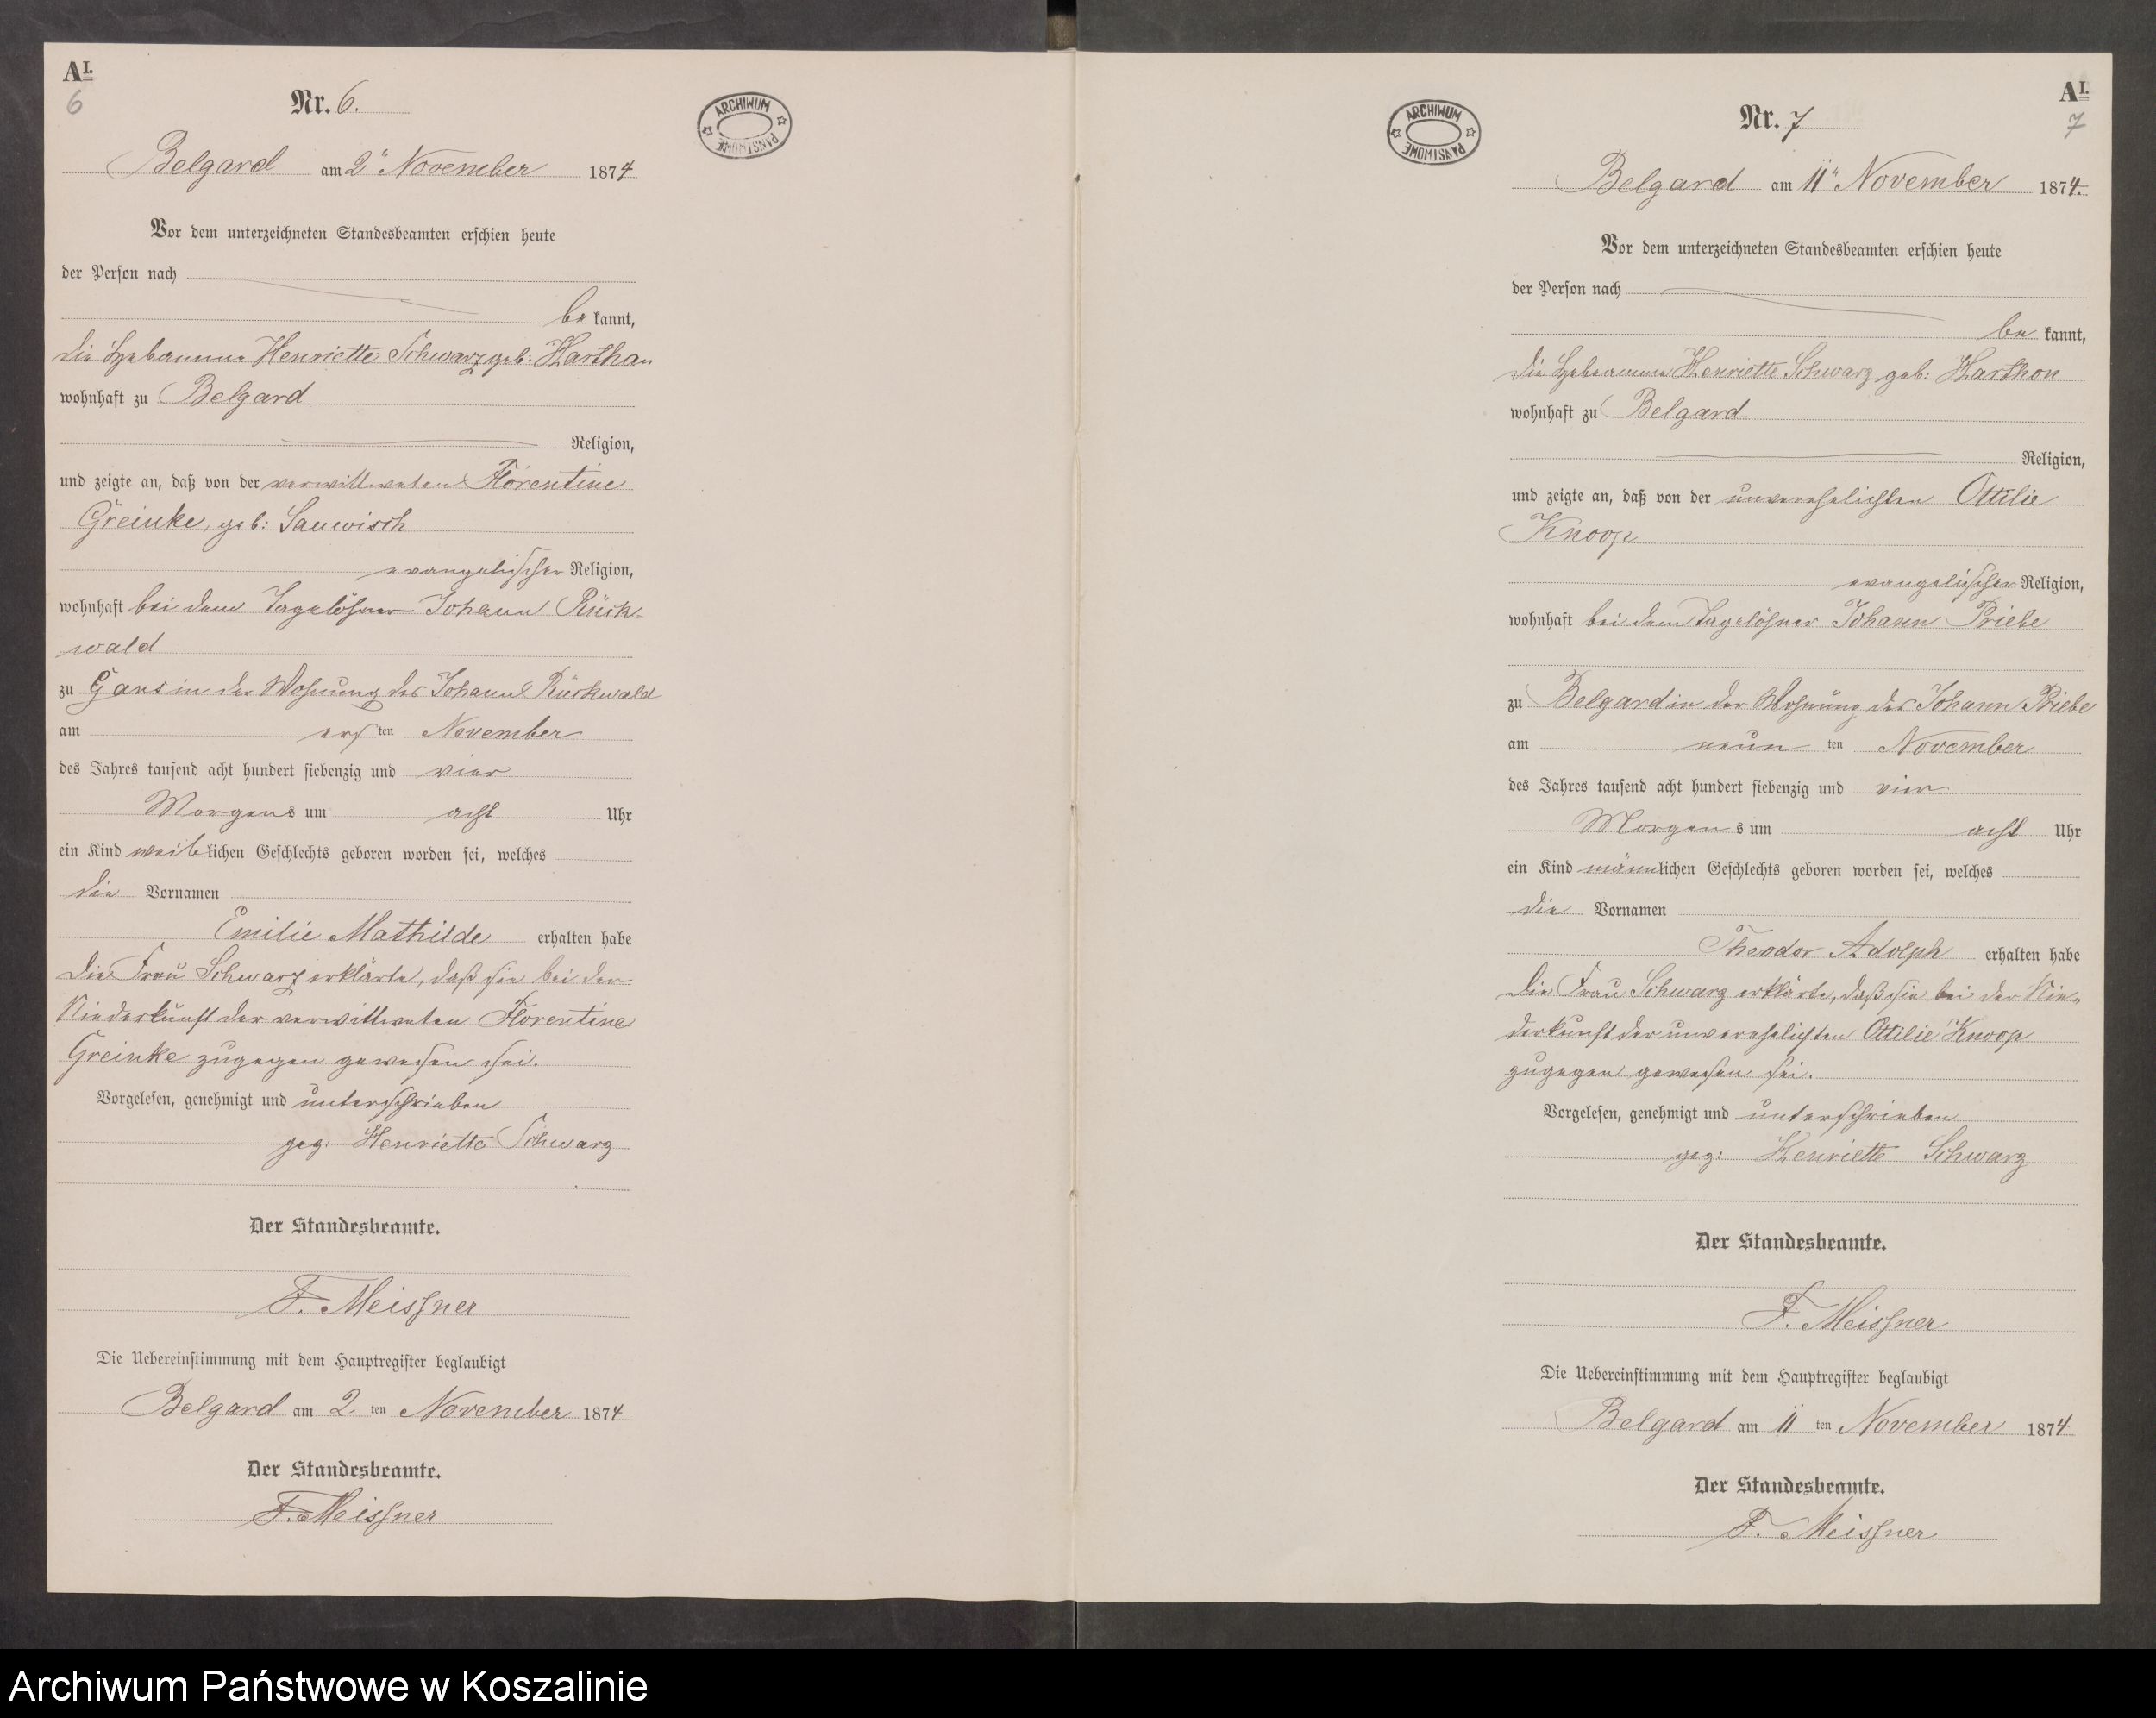 AI.
6
Nr. 6.
ARCHIWUM
PAŃSTWOWE
Belgard am 2ⁿ November 1874
Vor dem unterzeichneten Standesbeamten erschien heute
der Person nach
be kannt,
die Hebamme Henriette Schwarz geb: Harthan
wohnhaft zu Belgard
Religion,
und zeigte an, daß von der verwittweten Florentine
Greinke, geb: Sauwisch
evangelischer Religion,
wohnhaft bei dem Tagelöhner Johann Rück-
wald
zu Gans in der Wohnung des Johann Rückwald
am ers ten November
des Jahres tausend acht hundert siebenzig und vier
Morgens um acht Uhr
ein Kind weiblichen Geschlechts geboren worden sei, welches
die Vornamen
Emilie Mathilde erhalten habe
Die Frau Schwarz erklärte, daß sie bei der
Niederkunft der verwittweten Florentine
Greinke zugegen gewesen sei.
Vorgelesen, genehmigt und unterschrieben
gez: Henriette Schwarz
Der Standesbeamte.
F. Meissner
Die Uebereinstimmung mit dem Hauptregister beglaubigt
Belgard am 2. ten November 1874
Der Standesbeamte.
F. Meissner
AI.
7
Nr. 7
ARCHIWUM
PAŃSTWOWE
Belgard am 11ⁿ November 1874.
Vor dem unterzeichneten Standesbeamten erschien heute
der Person nach
be kannt,
die Hebamme Henriette Schwarz geb: Harthon
wohnhaft zu Belgard
Religion,
und zeigte an, daß von der unverehelichten Ottilie
Knoop
evangelischer Religion,
wohnhaft bei dem Tagelöhner Johann Priebe
zu Belgard in der Wohnung des Johann Priebe
am neun ten November
des Jahres tausend acht hundert siebenzig und vier
Morgen s um acht Uhr
ein Kind männlichen Geschlechts geboren worden sei, welches
die Vornamen
Theodor Adolph erhalten habe
Die Frau Schwarz erklärte, daß sie bei der Nie-
derkunft der unverehelichten Ottilie Knoop
zugegen gewesen sei.
Vorgelesen, genehmigt und unterschrieben
gez: Henriette Schwarz
Der Standesbeamte.
F. Meissner
Die Uebereinstimmung mit dem Hauptregister beglaubigt
Belgard am 11 ten November 1874
Der Standesbeamte.
F. Meissner
Archiwum Państwowe w Koszalinie